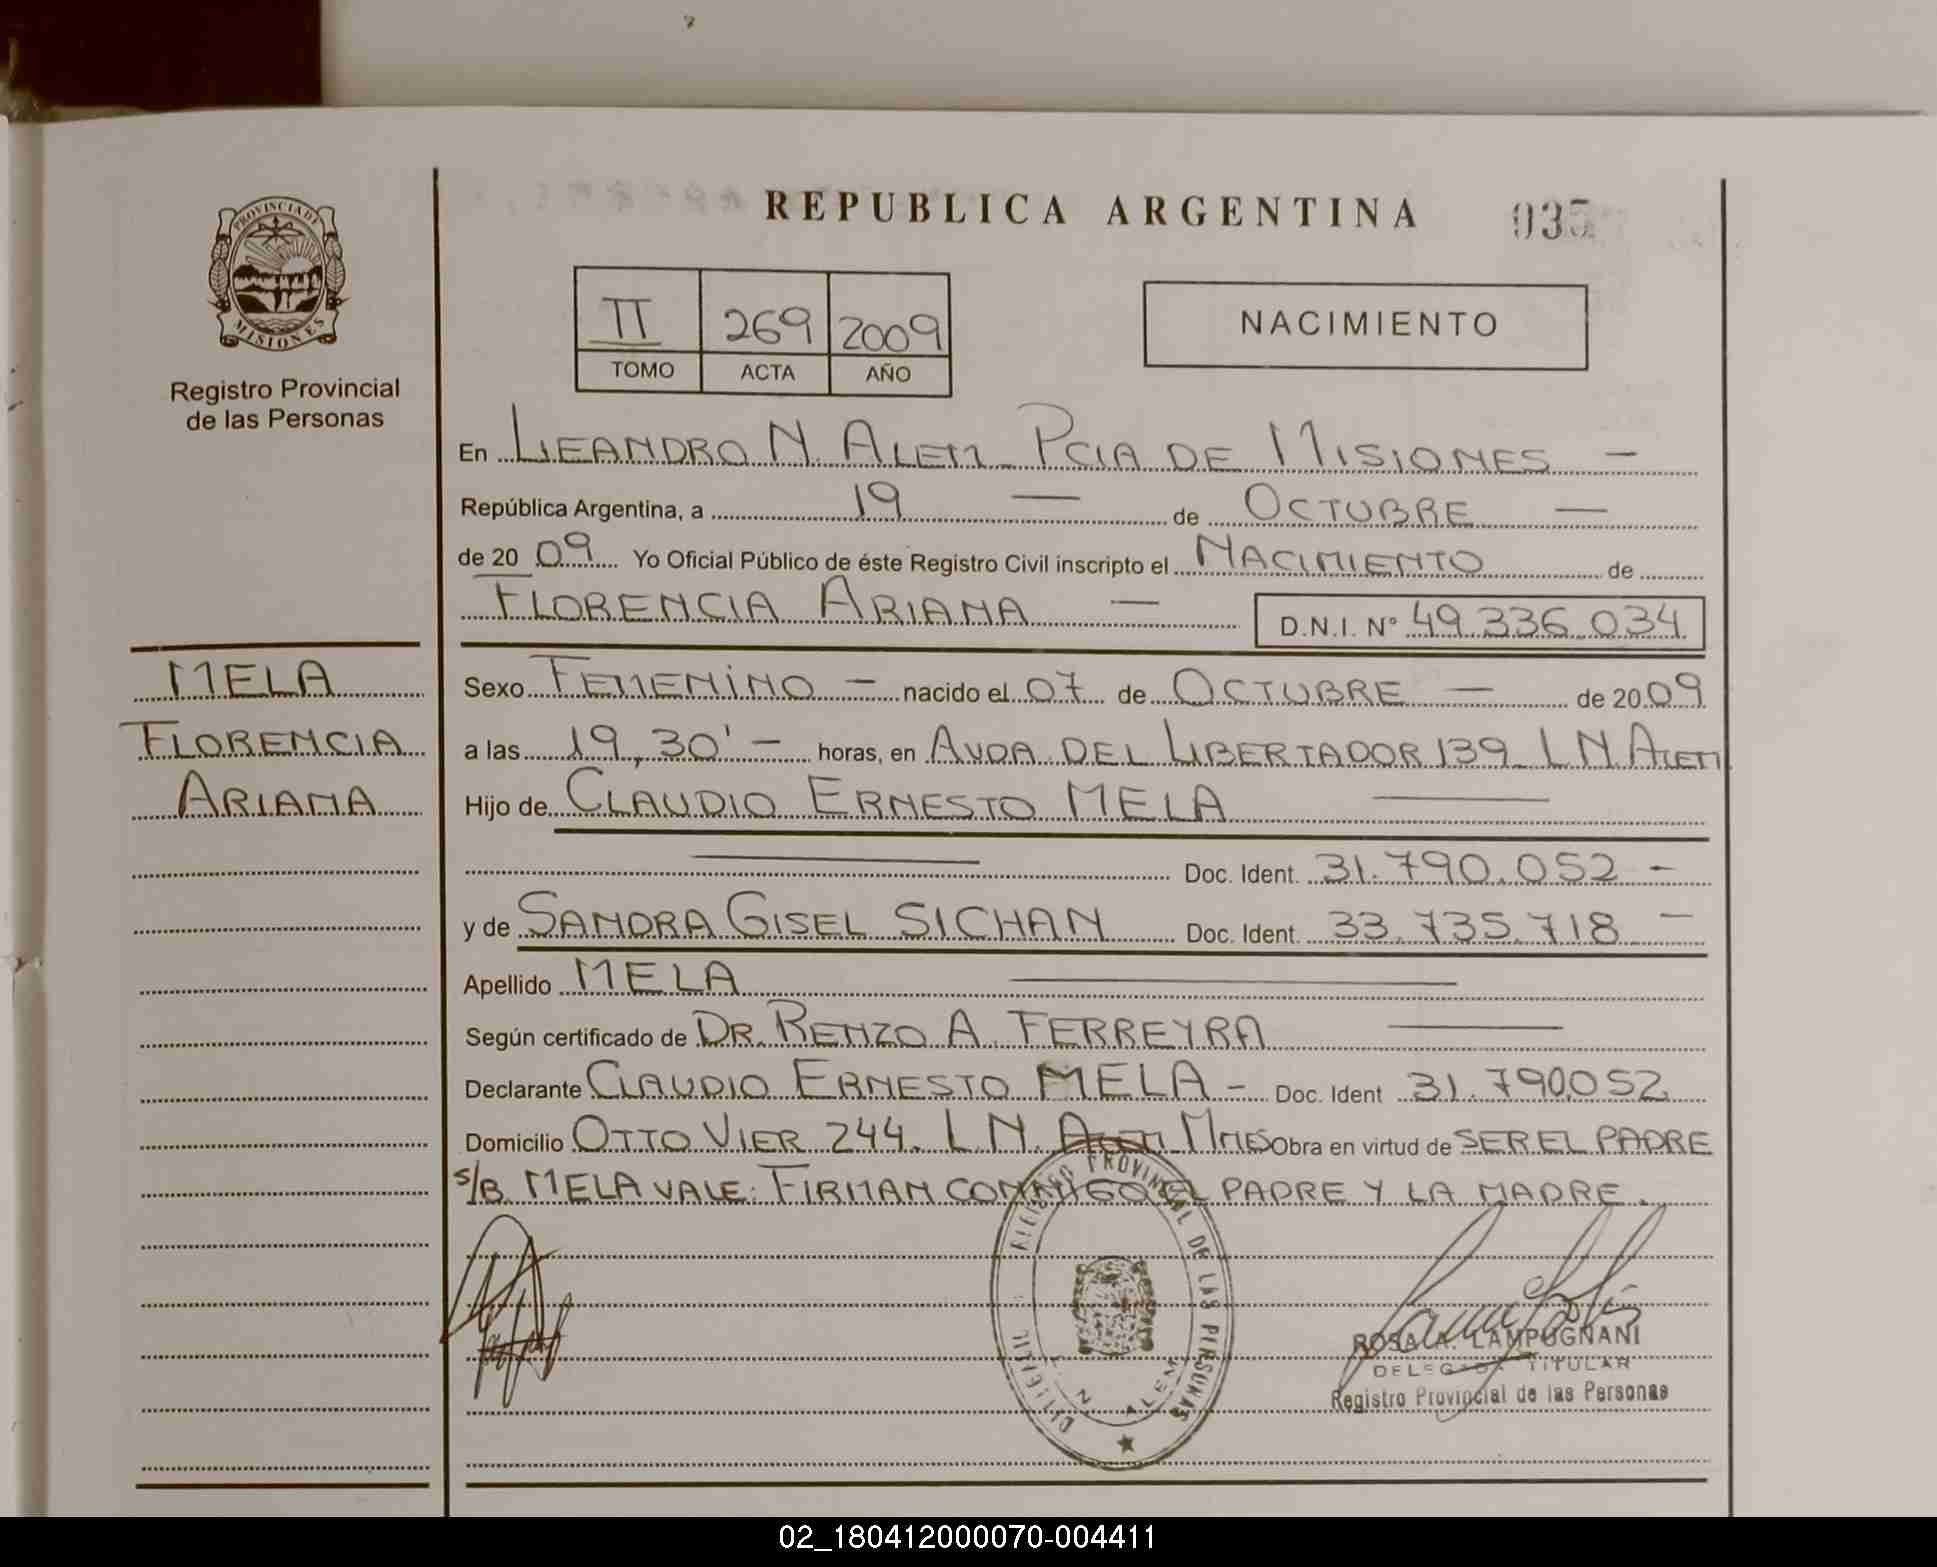 REPUBLICA ARGENTINA
035
PROVINCIA DE
MISIONES
Registro Provincial
de las Personas
II 269 2009
TOMO ACTA AÑO
NACIMIENTO
En LEANDRO N. ALEM - PCIA DE MISIONES -
República Argentina, a 19 — de OCTUBRE —
de 2009 Yo Oficial Público de éste Registro Civil inscripto el NACIMIENTO de
FLORENCIA ARIANA — D.N.I. Nº 49.336.034
MELA
FLORENCIA
ARIANA
Sexo FEMENINO - nacido el 07 de OCTUBRE — de 2009
a las 19,30' - horas, en AVDA. DEL LIBERTADOR 139 - L N ALEM
Hijo de CLAUDIO ERNESTO MELA —
— Doc. Ident. 31.790.052 -
y de SANDRA GISEL SICHAN Doc. Ident. 33.735.718 -
Apellido MELA —
Según certificado de DR. RENZO A. FERREYRA —
Declarante CLAUDIO ERNESTO MELA - Doc. Ident 31.790.052
Domicilio OTTO VIER 244. L.N. ALEM Mnes Obra en virtud de SER EL PADRE
s/B. MELA VALE: FIRMAN CONMIGO EL PADRE Y LA MADRE.
REGISTRO PROVINCIAL DE LAS PERSONAS
N. ALEM
ROSA A. LAMPUGNANI
DELEGADA TITULAR
Registro Provincial de las Personas
02_180412000070-004411